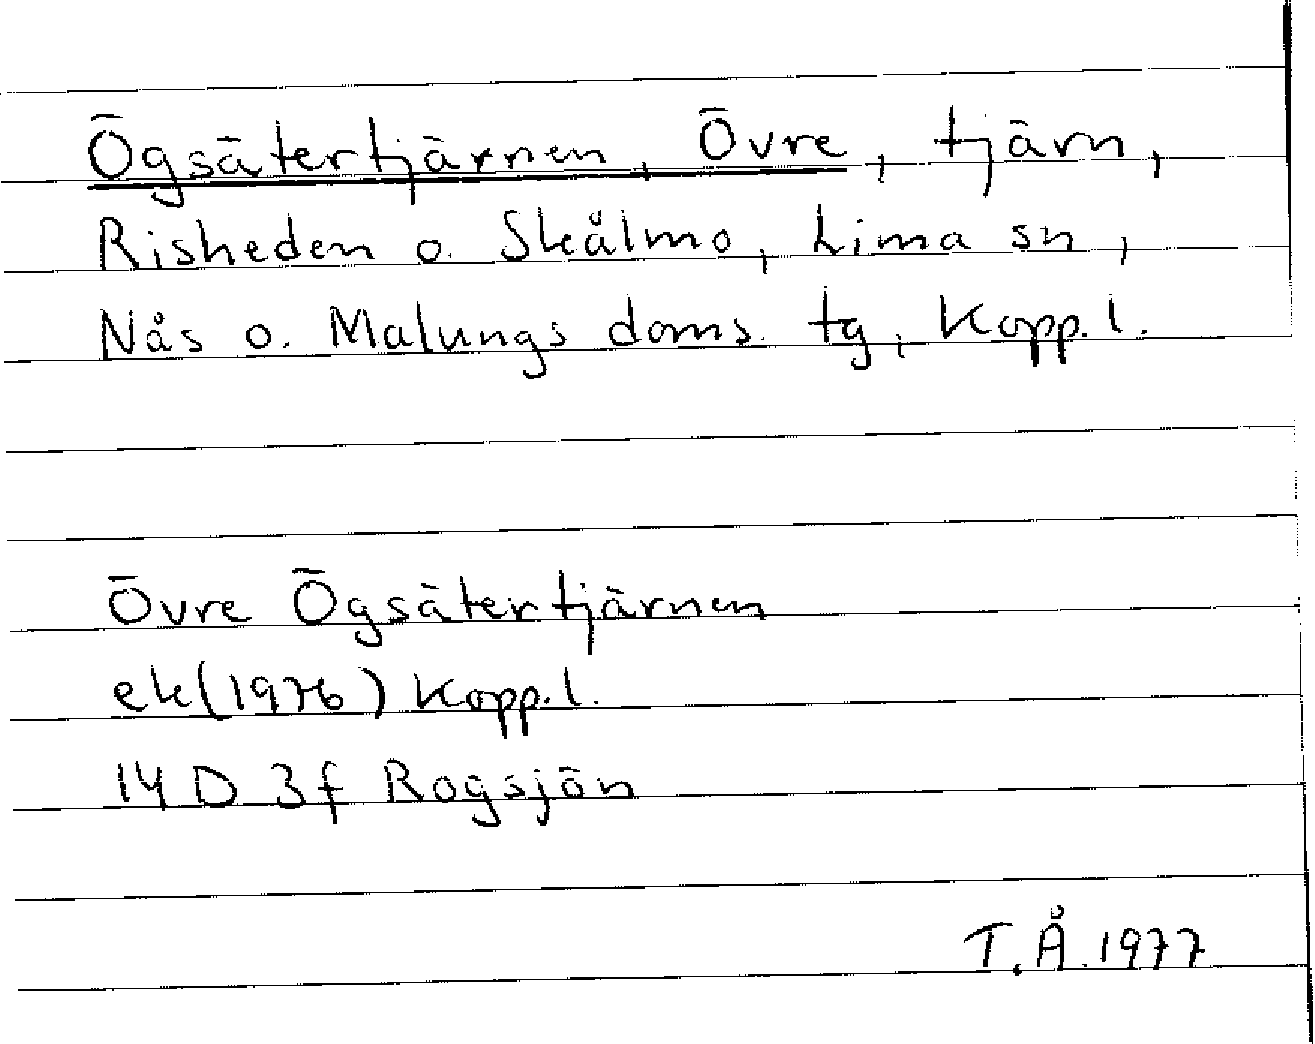 Ögsätertjärnen, Övre, tjärn,
Risheden o. Skålmo, Lima sn,
Nås o. Malungs doms. tg, Kopp. l.
Övre Ögsätertjärnen
ek (1976) Kopp. l.
14 D 3f Rogsjön
T. Å. 1977